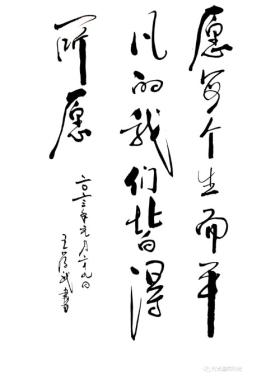 愿每个生而平
凡的我们皆得
所愿
二〇二三年元月二十九日
书